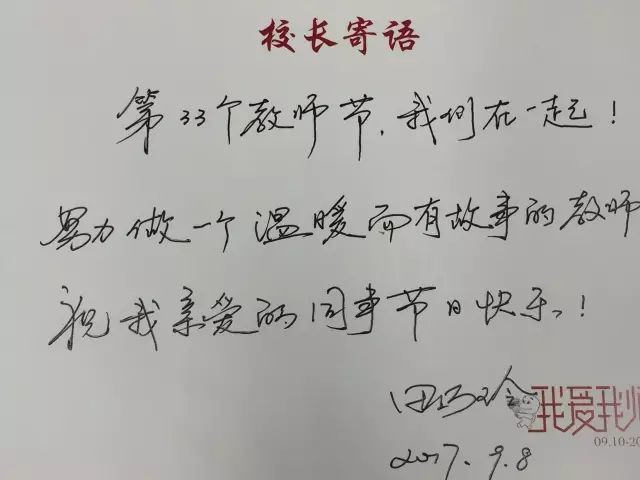 校长寄语
第33个教师节，我们在一起！
努力做一个温暖而有故事的教师
祝我亲爱的同事节日快乐！
田巧玲
我爱我师
09.10-20
2017.9.8